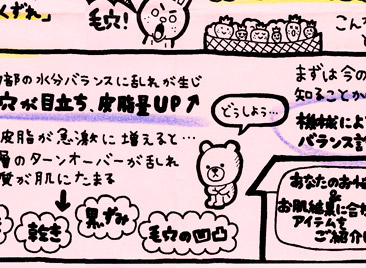 くずれ」
毛穴!
こんな
部の水分バランスに乱れが生じ
穴が目立ち、皮脂量UP↑
皮脂が急激に増えると…
層のターンオーバーが乱れ
質が肌にたまる
乾き
黒ずみ
毛穴の凹凸
どうしよう…
まずは今の
知ることか
機械によ
バランス
あなたのお
&
お肌結果に合
アイテムを
ご紹介